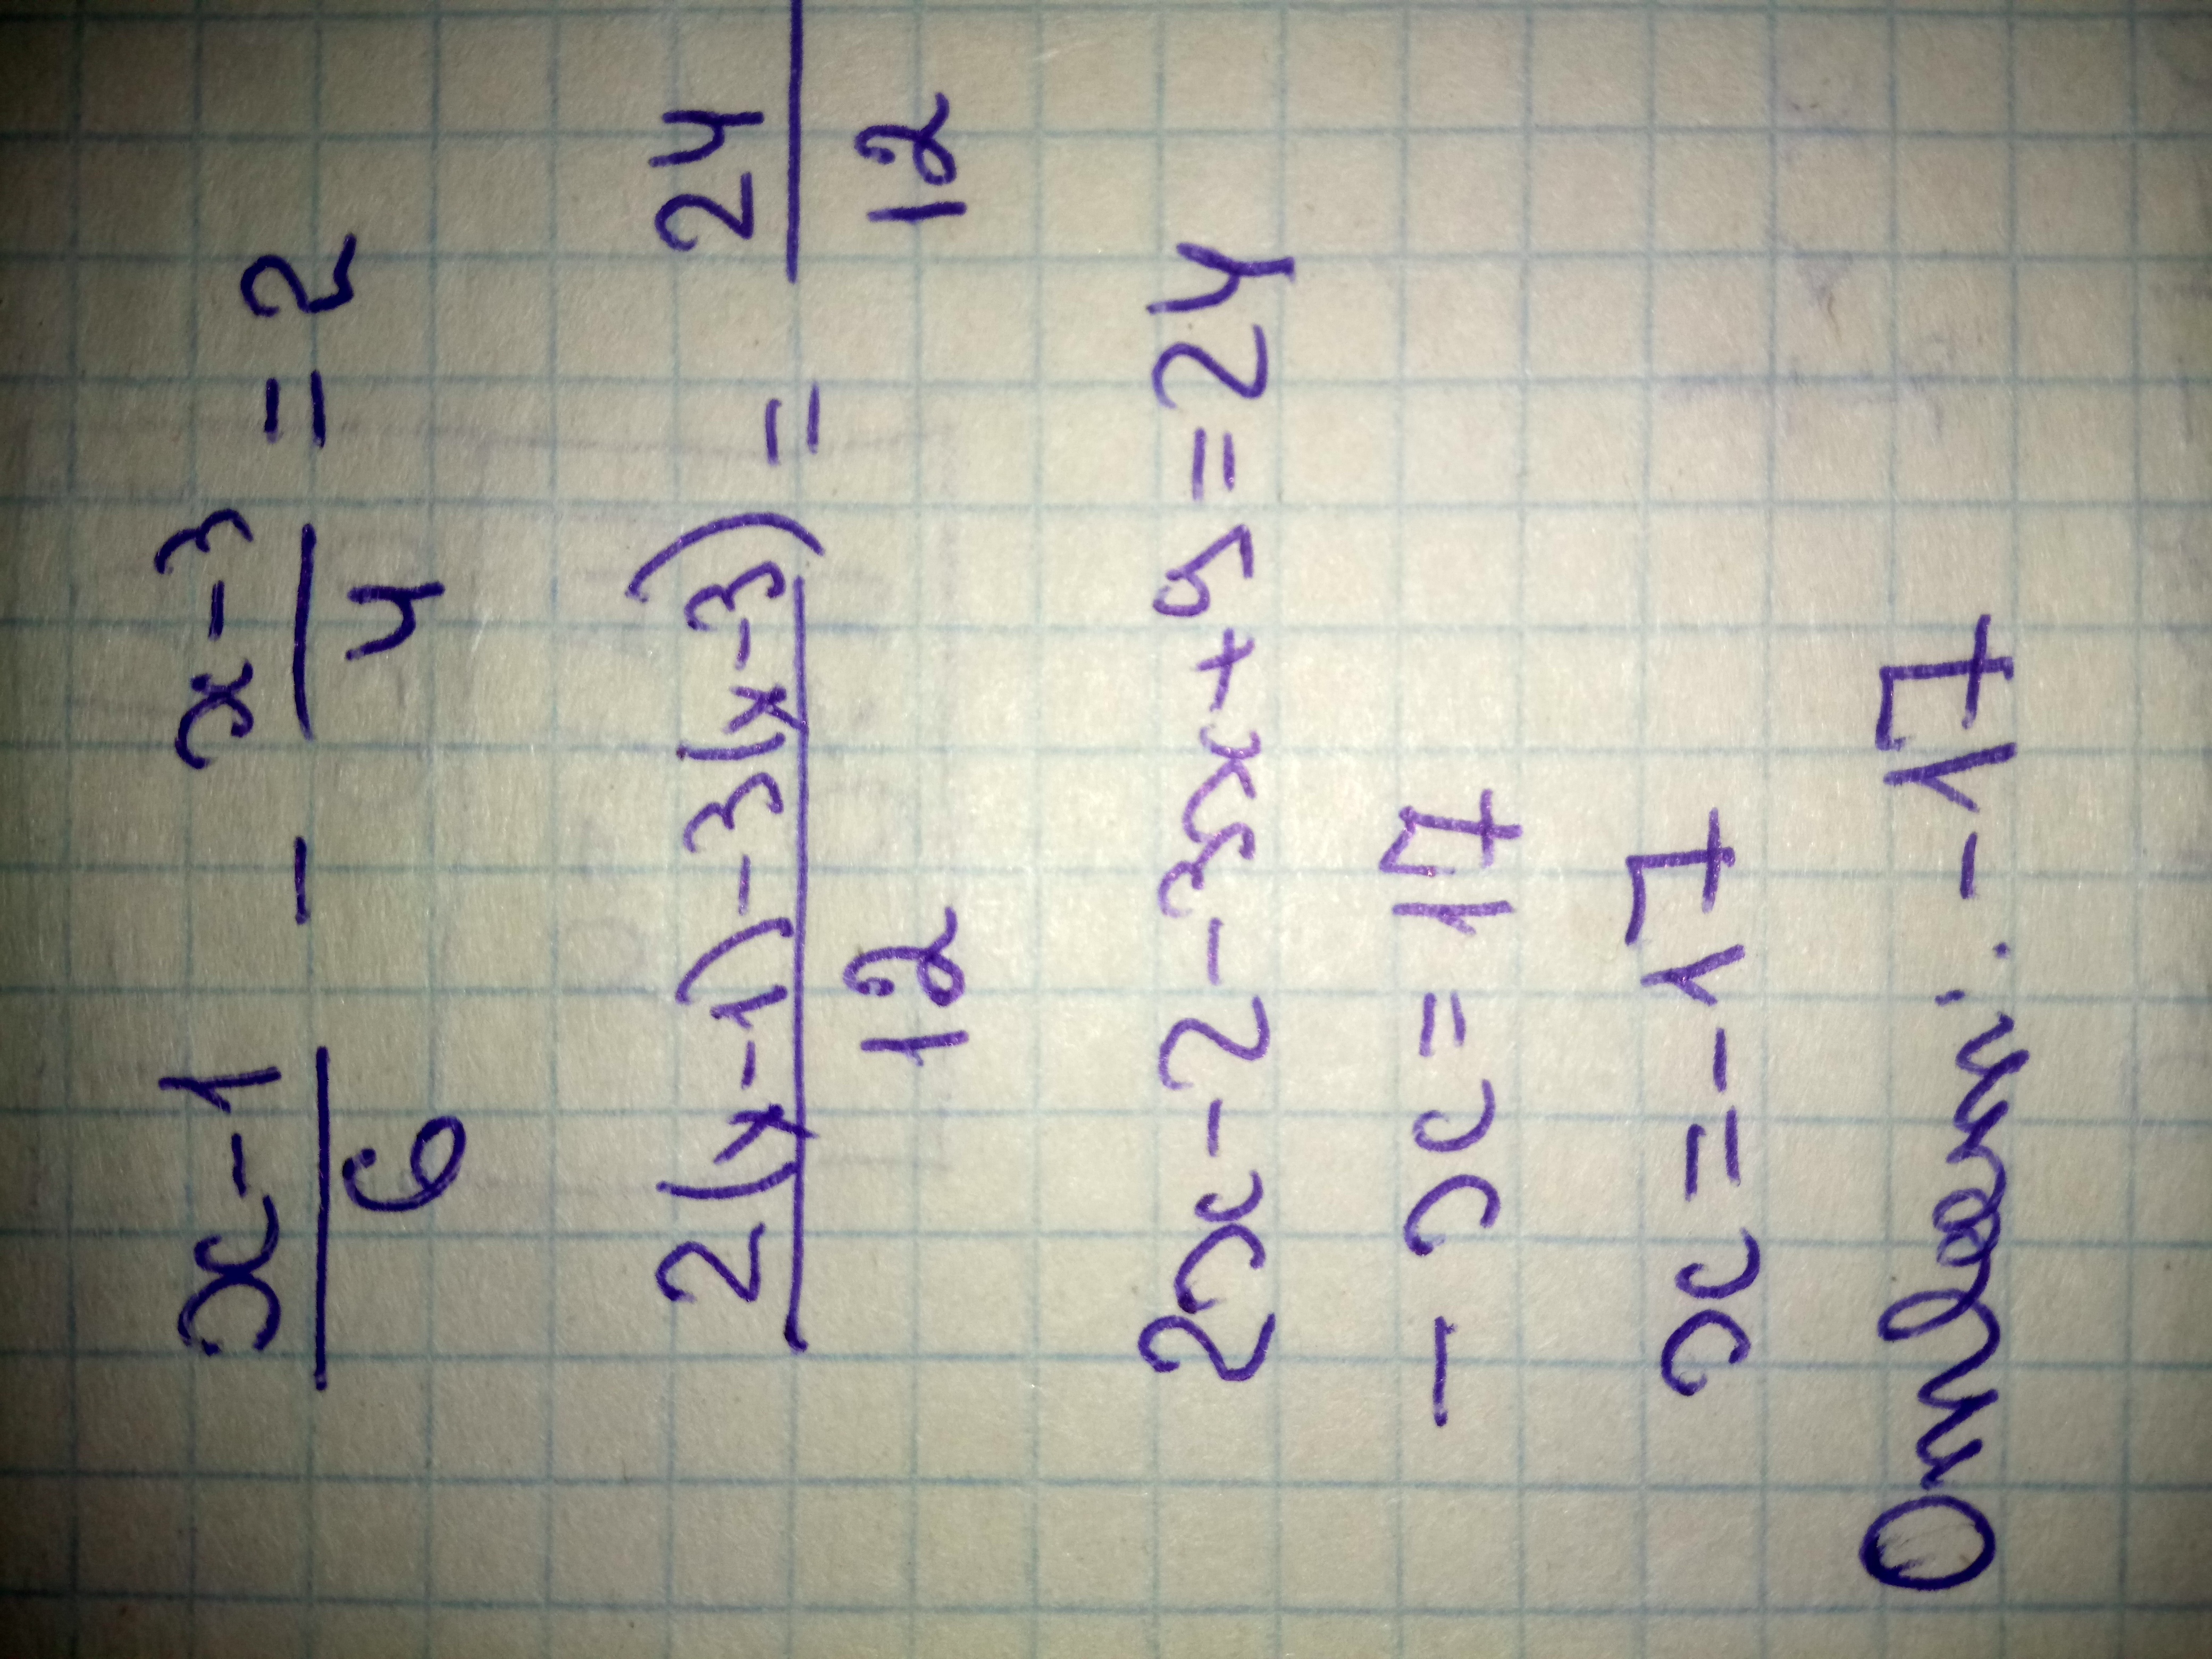 x-1 x-3
— - — = 2
6 4
2(x-1)-3(x-3) = 24
12 12
2x-2-3x+9=24
-x=17
x=-17
Ответ: -17